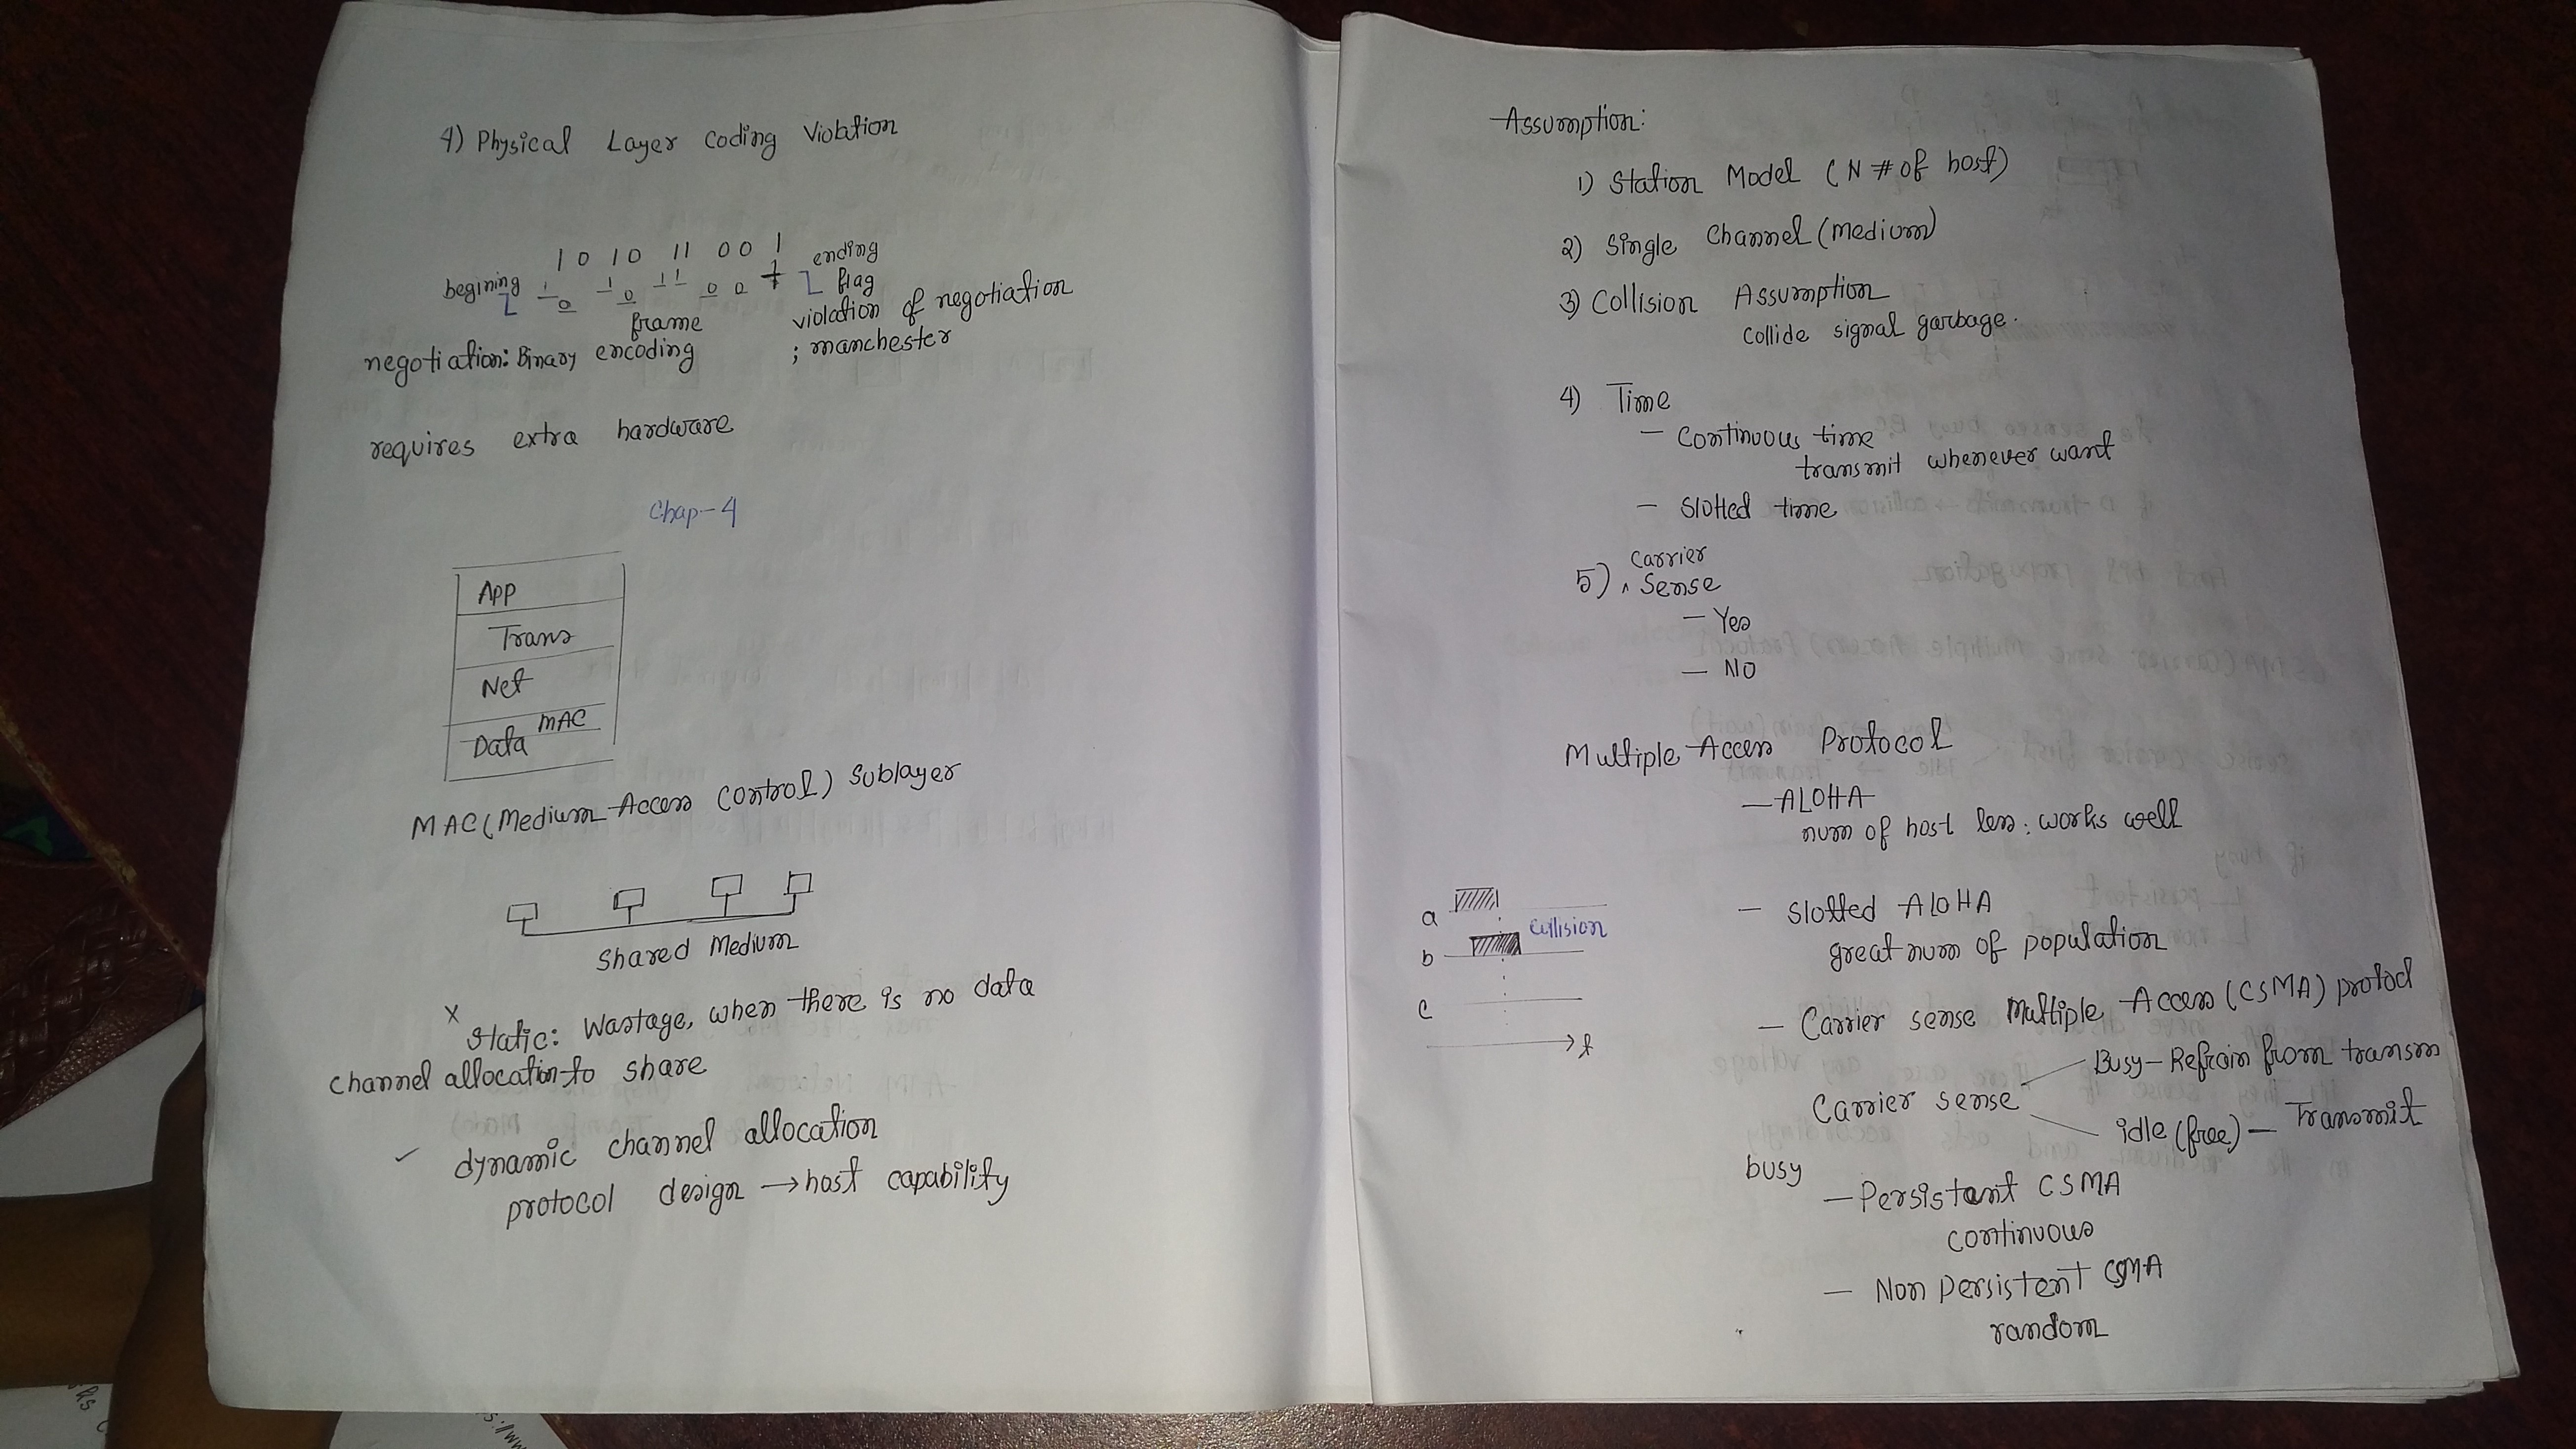 4) Physical Layer Coding Violation
1 0 1 0 11 0 0 1
begining 1 0 1 0 1 1 0 0 1 ending
flag
frame
violation of negotiation
negotiation: Binary encoding ; manchester
requires extra hardware
Chap-4
App
Trans
Net
MAC
Data
MAC (Medium Access Control) Sublayer
Shared Medium
x static: Wastage, when there is no data
channel allocation to share
✓ dynamic channel allocation
protocol design → host capability
Assumption:
1) Station Model (N # of host)
2) Single Channel (Medium)
3) Collision Assumption
collide signal garbage.
4) Time
- Continuous time
transmit whenever want
- Slotted time
Carrier
5) ^ Sense
- Yes
- No
Multiple Access Protocol
- ALOHA
num of host less: works well
- Slotted ALOHA
great num of population
a
b
c
collision
t
- Carrier sense Multiple Access (CSMA) protocl
Busy - Refrain from transm
Carrier sense
idle (free) - Transmit
busy
- Persistant CSMA
continuous
- Non Persistent CSMA
random